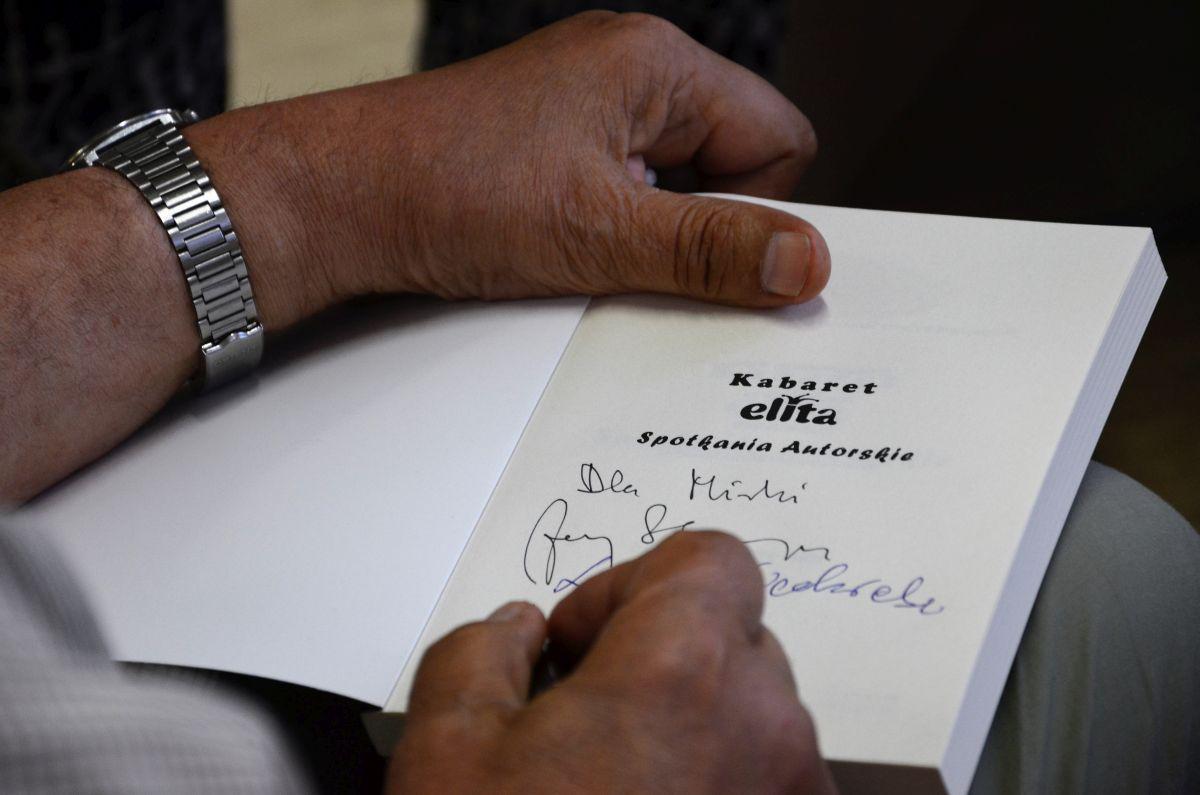 Kabaret
elita
Spotkania Autorskie
Dla Mirki
Jerzy